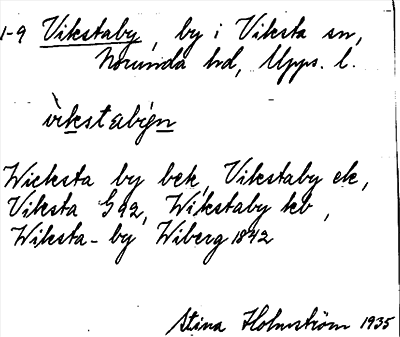 1-9 Vikstaby, by i Viksta sn,
Norunda hd, Upps. l.
vìkstabýn
Wicksta by bek, Vikstaby ek,
Viksta G92, Wikstaby kb,
Wiksta-by Wiberg 1842
Stina Holmström 1935